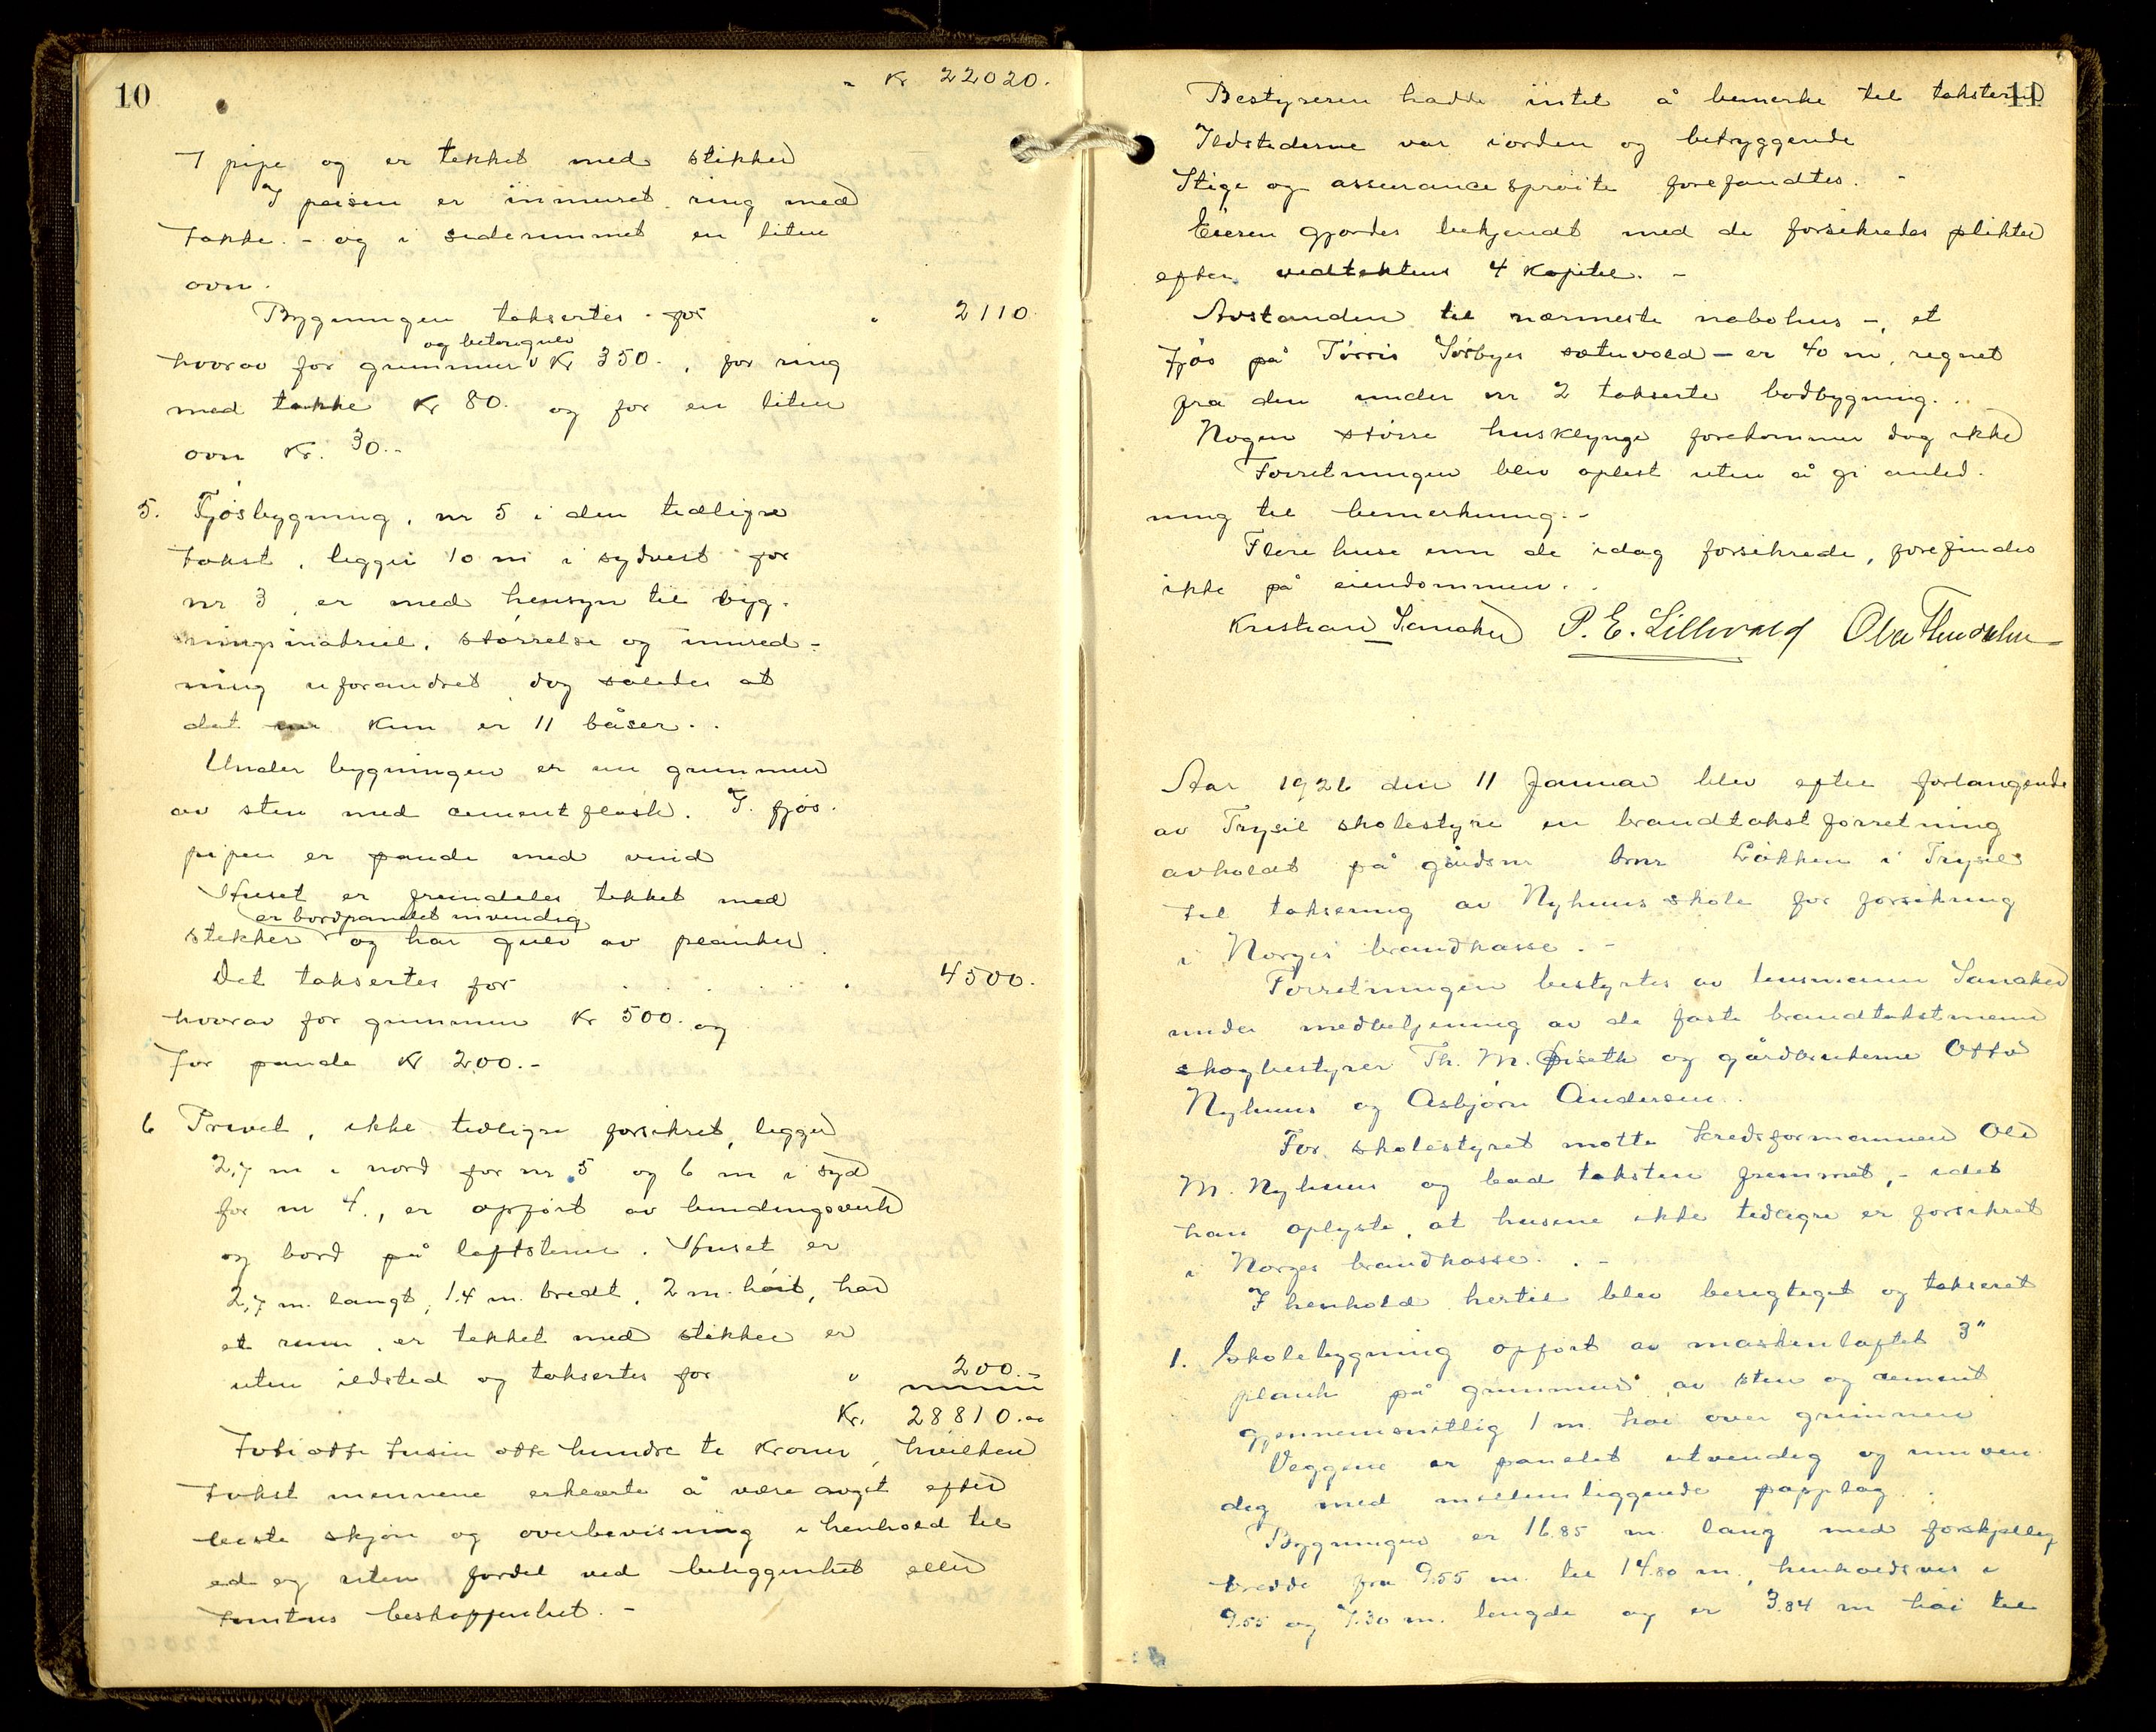 10
- Kr 22020.
1 pipe og er tekket med stikker
I peisen er inmuret ring med
takke. - og i siderummet en liten
ovn.
Bygningen taksertes for " 2110
og betongulv
hvorav for grunmur Kr 350. , for ring
med takke Kr 80. og for en liten
ovn Kr. 30.-
5. Fjøsbygning, nr 5 i den tidligre
takst, ligger 10 m i sydvest for
nr 3, er med hensyn til byg-
ningsmatriel, størrelse og innred-
ning uforandret dog således at
det kun er 11 båser. .
Under bygningen er nu grunmur
av sten med cementpusk. I fjøs-
pipen er pande med vind
Huset er fremdeles tekket med
er bordpanelet invendig
stikker og har gulv av planker.
Det taksertes for . . . . . " 4500.
hvorav for grunmur Kr 500. og
for pande Kr 200.-
6 Privet, ikke tidligre forsikret, ligger
2,7 m i nord for nr 5 og 6 m i syd
for nr 4., er opført av bindingsverk
og bord på løftstener. Huset er
2,7 m. langt, 1.4 m. bredt, 2 m. høit, har
et rum, er tekket med stikker er
uten ildsted og taksertes for " 200.-
Kr. 28810.00
Toti otte tusin otte hundre ti kroner, hvilken
takst mennene erklærte å være avgit efter
beste skjøn og overbevisning i henhold til
ed og uten fordel ved beliggenhet eller
tomtens beskaffenhet. -
11
Bestyreren hadde intet å bemerke til taksten
Ildstederne var iorden og betryggende
Stige og assurancesprøite forefandtes. -
Eieren gjordes bekjendt med de forsikredes plikter
efter vedtektens 4 Kapitel. -
Avstanden til nærmeste nabohus -, et
fjøs på Tørris Sørbyes sætervold - er 40 m, regnet
fra den under nr 2 takserte bodbygning. . .
Nogen større husklynge forekommer dog ikke
Forretningen blev oplest uten å gi anled-
ning til bemerkning.-
Flere huse enn de idag forsikrede, forefindes
ikke på eiendommen. .
Kristian Sanaker P. E. Lillevold
Aar 1926 den 11 Januar blev efter forlangende
av Trysil skolestyre en brandtakstforretning
avholdt på gårdsnr brnr Løkken i Trysil
til taksering av Nyhuus skole for forsikring
i Norges brandkasse. -
Forretningen bestyrtes av lensmann Sanaker
under medbetjening av de faste brandtakstmenn
skogbestyrer Th. M. Øiseth og gårdbrukerne Otto
Nyhuus og Asbjørn Andersen.
For skolestyret møtte kredsformannen Ole
M. Nyhuus og bad taksten fremmet, - idet
han oplyste, at husene ikke tidligre er forsikret
i Norges brandkasse. . -
I henhold hertil blev besigtiget og takseret
1. Skolebygning opført av maskenlaftet 3"
plank på grunmur av sten og cement
gjennemsnitlig 1 m. høi over grunnen
Veggene er panelet utvendig og innven-
dig med mellemliggende papplag. .
Bygningen er 16.85 m lang med forskjellig
bredde fra 9.55 m. til 14.80 m., henholdsvis i
9.55 og 7.30 m. lengde og er 3.84 m høi til